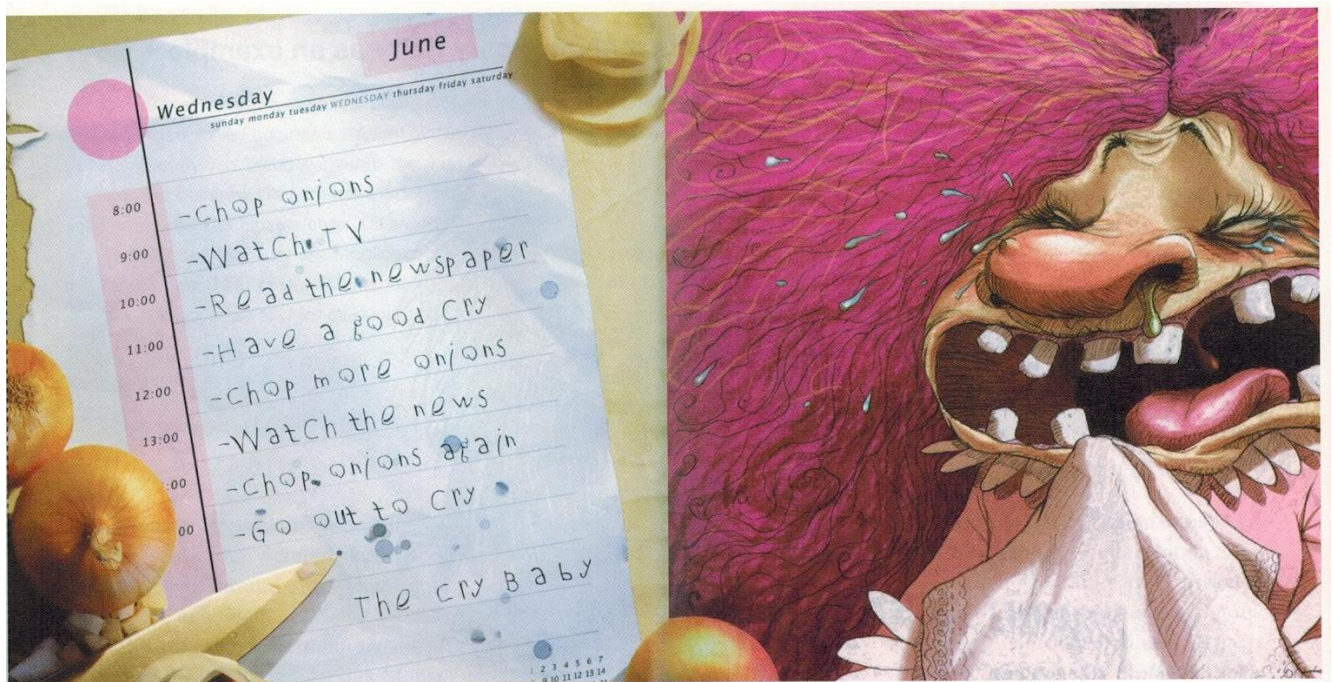 June
Wednesday
sunday monday tuesday WEDNESDAY thursday friday saturday
8:00 -Chop onions
9:00 -WatCh TV
10:00 -Read the newspaper
11:00 -Have a good Cry
12:00 -Chop more onions
13:00 -WatCh the news
:00 -Chop onions again
00 -Go out to Cry
The Cry Baby
1 2 3 4 5 6 7
9 10 11 12 13 14